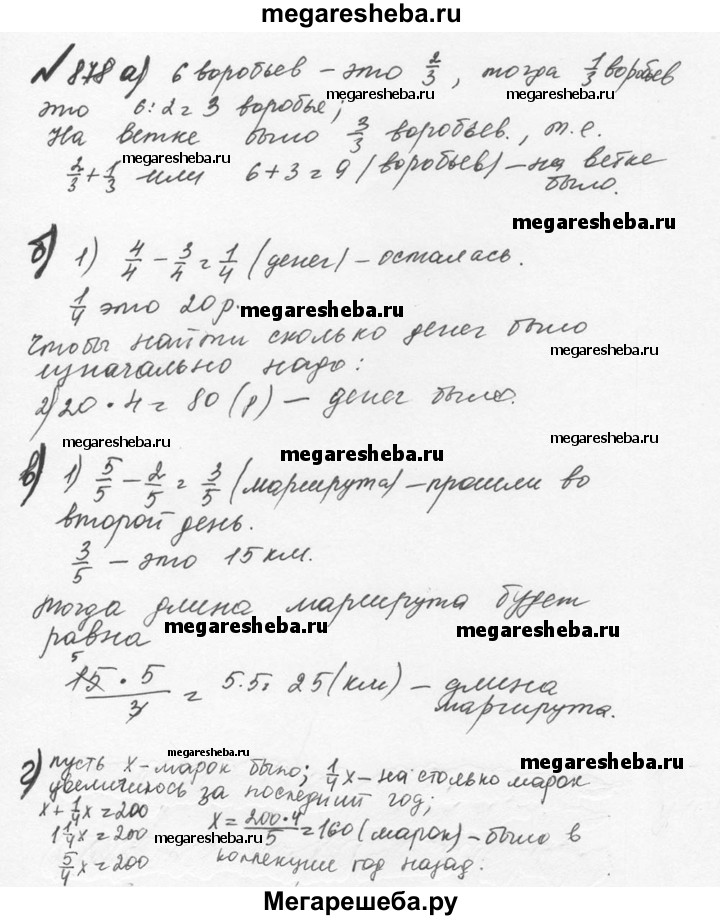 megaresheba.ru
№ 878 а) 6 воробьев – это 2/3, тогда 1/3 воробьев
megaresheba.ru megaresheba.ru
это 6:2=3 воробья;
На ветке было 3/3 воробьев., т.е.
megaresheba.ru megaresheba.ru
2/3+1/3 или 6+3=9 (воробьев) – на ветке
было.
megaresheba.ru
б) 1) 4/4 – 3/4 = 1/4 (денег) – осталась.
1/4 это 20 р. megaresheba.ru
Чтобы найти сколько денег было
megaresheba.ru
изначально надо:
2) 20 · 4 = 80 (р) – денег было.
megaresheba.ru megaresheba.ru megaresheba.ru
в) 1) 5/5 – 2/5 = 3/5 (маршрута) – прошли во
второй день.
3/5 – это 15 км.
Тогда длина маршрута будет
равна megaresheba.ru megaresheba.ru
5
15 · 5 / 3 = 5·5= 25 (км) – длина
маршрута.
megaresheba.ru megaresheba.ru
г) пусть x – марок было; 1/4x – на столько марок
увеличилось за последний год;
x + 1/4x = 200
megaresheba.ru megaresheba.ru
1 1/4x = 200 x = 200·4/5 = 160 (марок) – было в
5/4x = 200 коллекции год назад.
Мегарешеба.ру